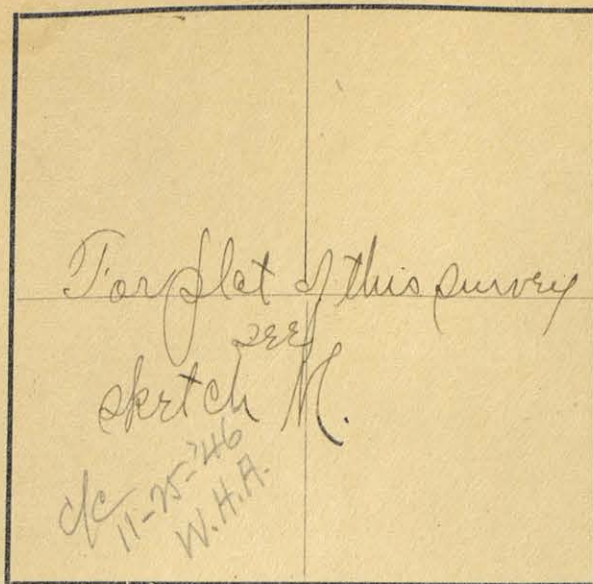 For plat of this survey
see
sketch M.
c/c
11-25-'46
W.H.A.